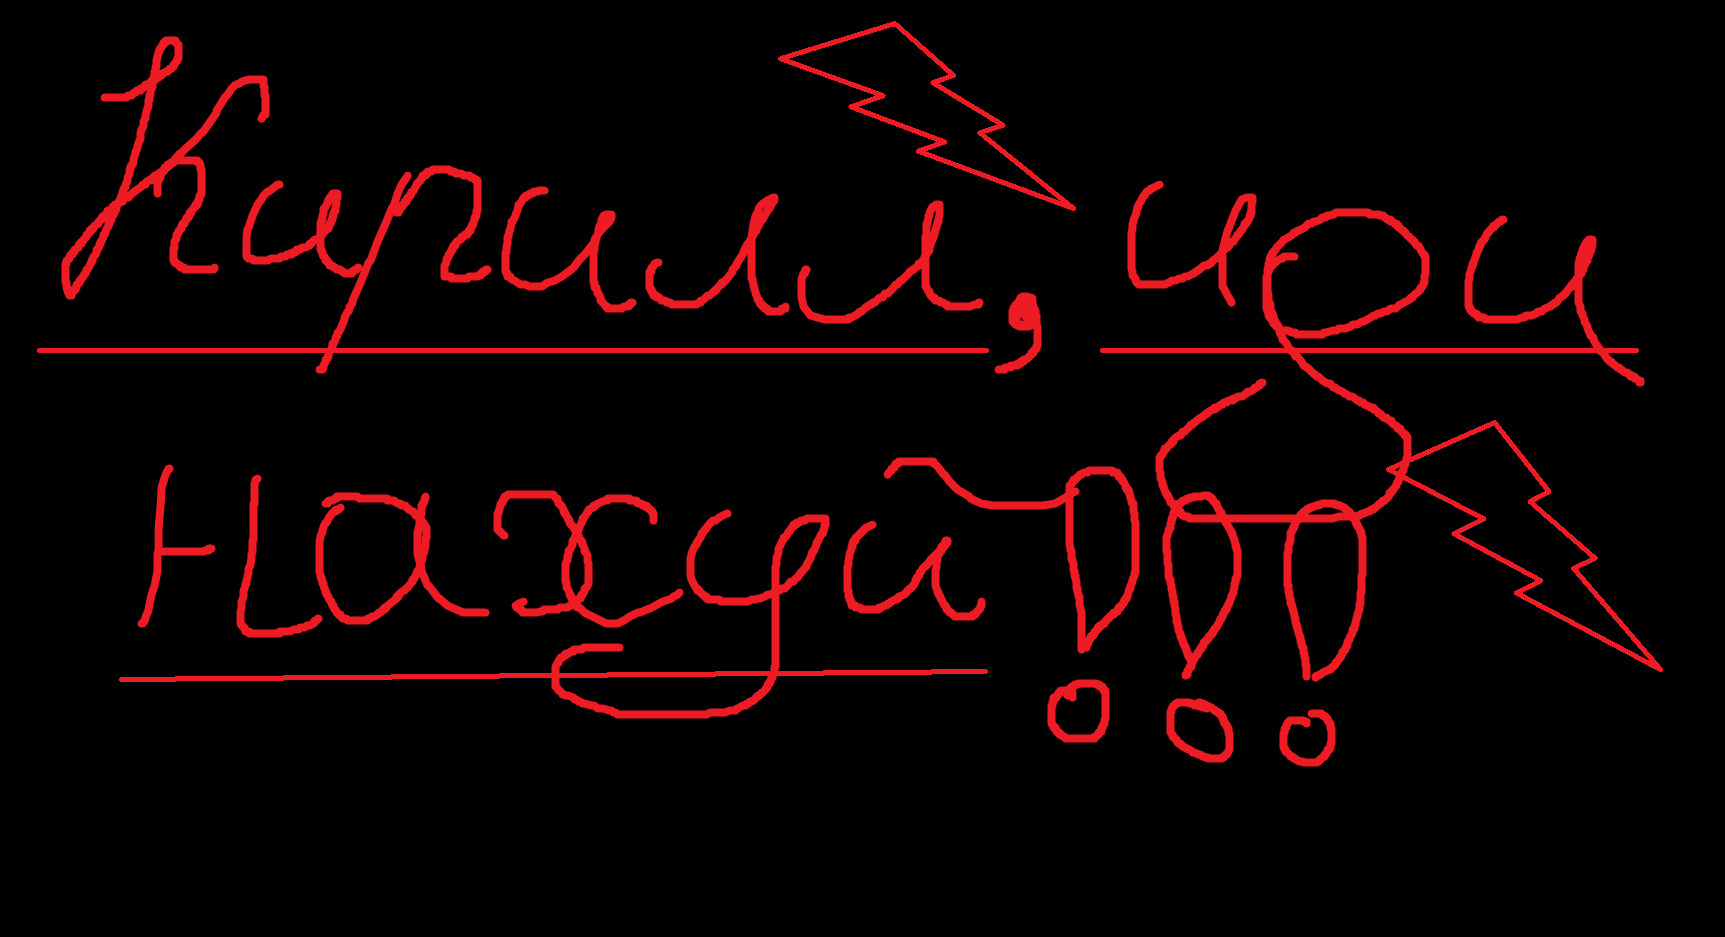 Кирилл, иди
нахуй!!!